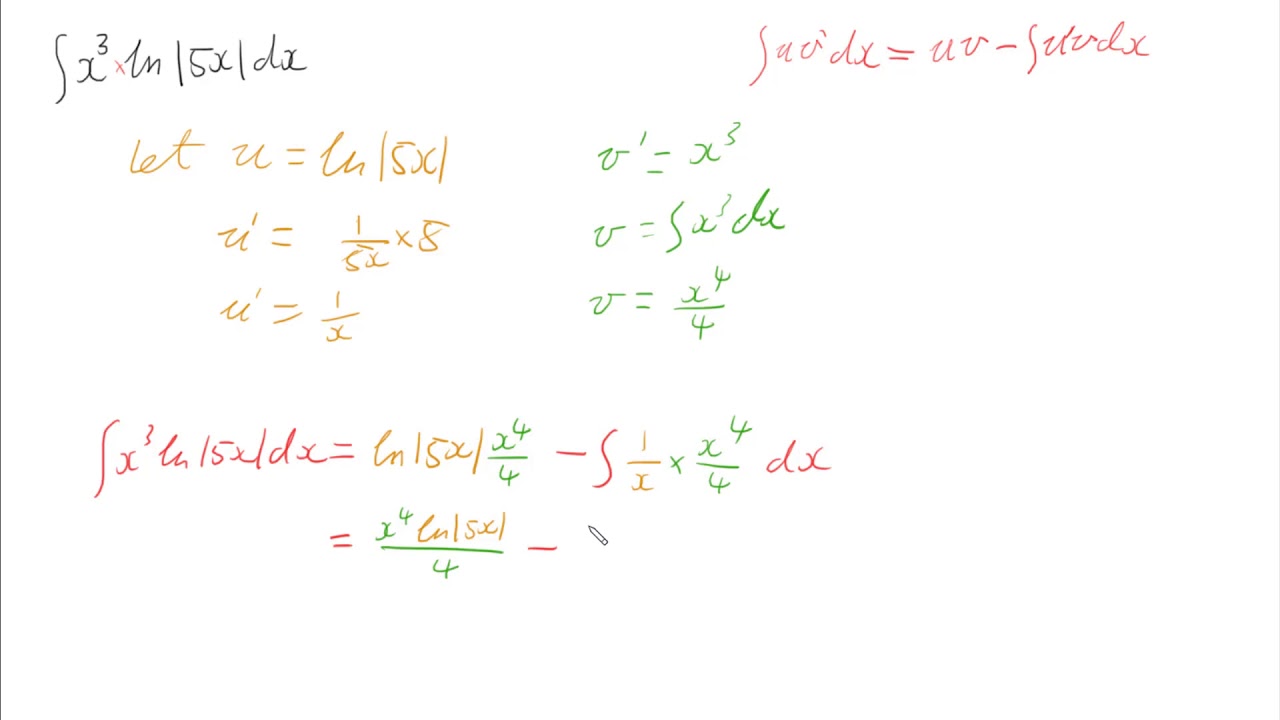 ∫x³×ln|5x|dx
∫uv'dx = uv - ∫u'vdx
Let u = ln|5x|
v' = x³
u' = 1/5x × 5
v = ∫x³dx
u' = 1/x
v = x⁴/4
∫x³ln|5x|dx = ln|5x| x⁴/4 - ∫ 1/x × x⁴/4 dx
= x⁴ln|5x|/4 -